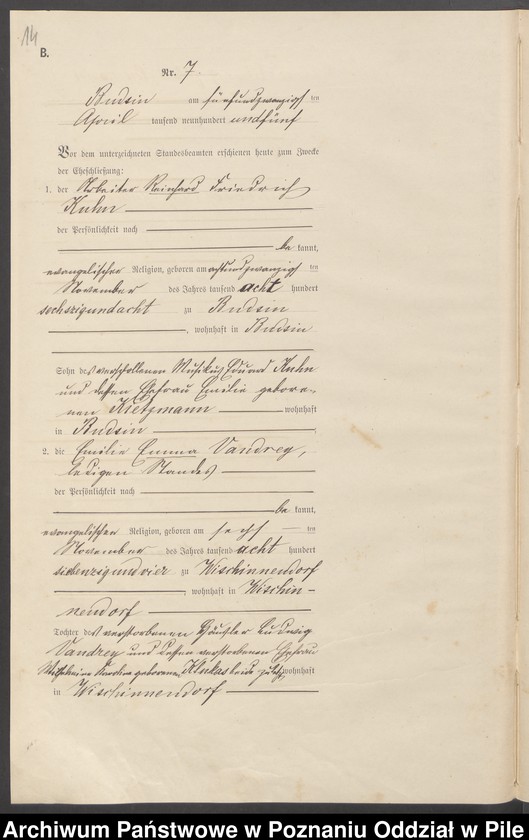 14
B.
Nr. 7.
Budsin am fünfundzwanzigsten
April tausend neunhundert undfünf
Vor dem unterzeichneten Standesbeamten erschienen heute zum Zwecke
der Eheschließung:
1. der Arbeiter Reinhard Friedrich
Kuhn
der Persönlichkeit nach
be kannt,
evangelischer Religion, geboren am achtundzwanzigsten
November des Jahres tausend acht hundert
sechszigundacht zu Budsin
, wohnhaft in Budsin
Sohn des verschollenen Musikus Eduard Kuhn
und dessen Ehefrau Emilie gebore-
nen Kietzmann wohnhaft
in Budsin
2. die Emilie Emma Vandrey,
ledigen Standes
der Persönlichkeit nach
be kannt,
evangelischer Religion, geboren am sechs ten
November des Jahres tausend acht hundert
siebenzigundvier zu Wischinnendorf
, wohnhaft in Wischin-
nendorf
Tochter des verstorbenen Häusler Ludwig
Vandrey und dessen verstorbenen Ehefrau
Wilhelmine geborenen beide zuletzt wohnhaft
in Wischinnendorf
Archiwum Państwowe w Poznaniu Oddział w Pile